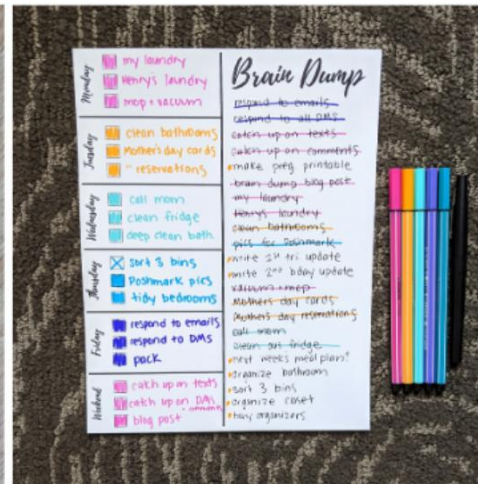 Monday
my laundry
Henry's laundry
mop + vacuum
Tuesday
clean bathrooms
Mother's day cards
" reservations
Wednesday
call mom
clean fridge
deep clean bath
Thursday
Sort 3 bins
Poshmark pics
tidy bedrooms
Friday
respond to emails
respond to DMs
pack
Weekend
catch up on texts
catch up on DMs
comments
blog post
Brain Dump
respond to emails
respond to all DMs
catch up on texts
catch up on comments
make preg printable
brain dump blog post
my laundry
Henry's laundry
clean bathrooms
pics for Poshmark
write 1st tri update
write 2nd bday update
vacuum + mop
Mothers day cards
Mother's day reservations
call mom
clean out fridge
next weeks meal plan?
organize bathroom
sort 3 bins
organize closet
buy organizers